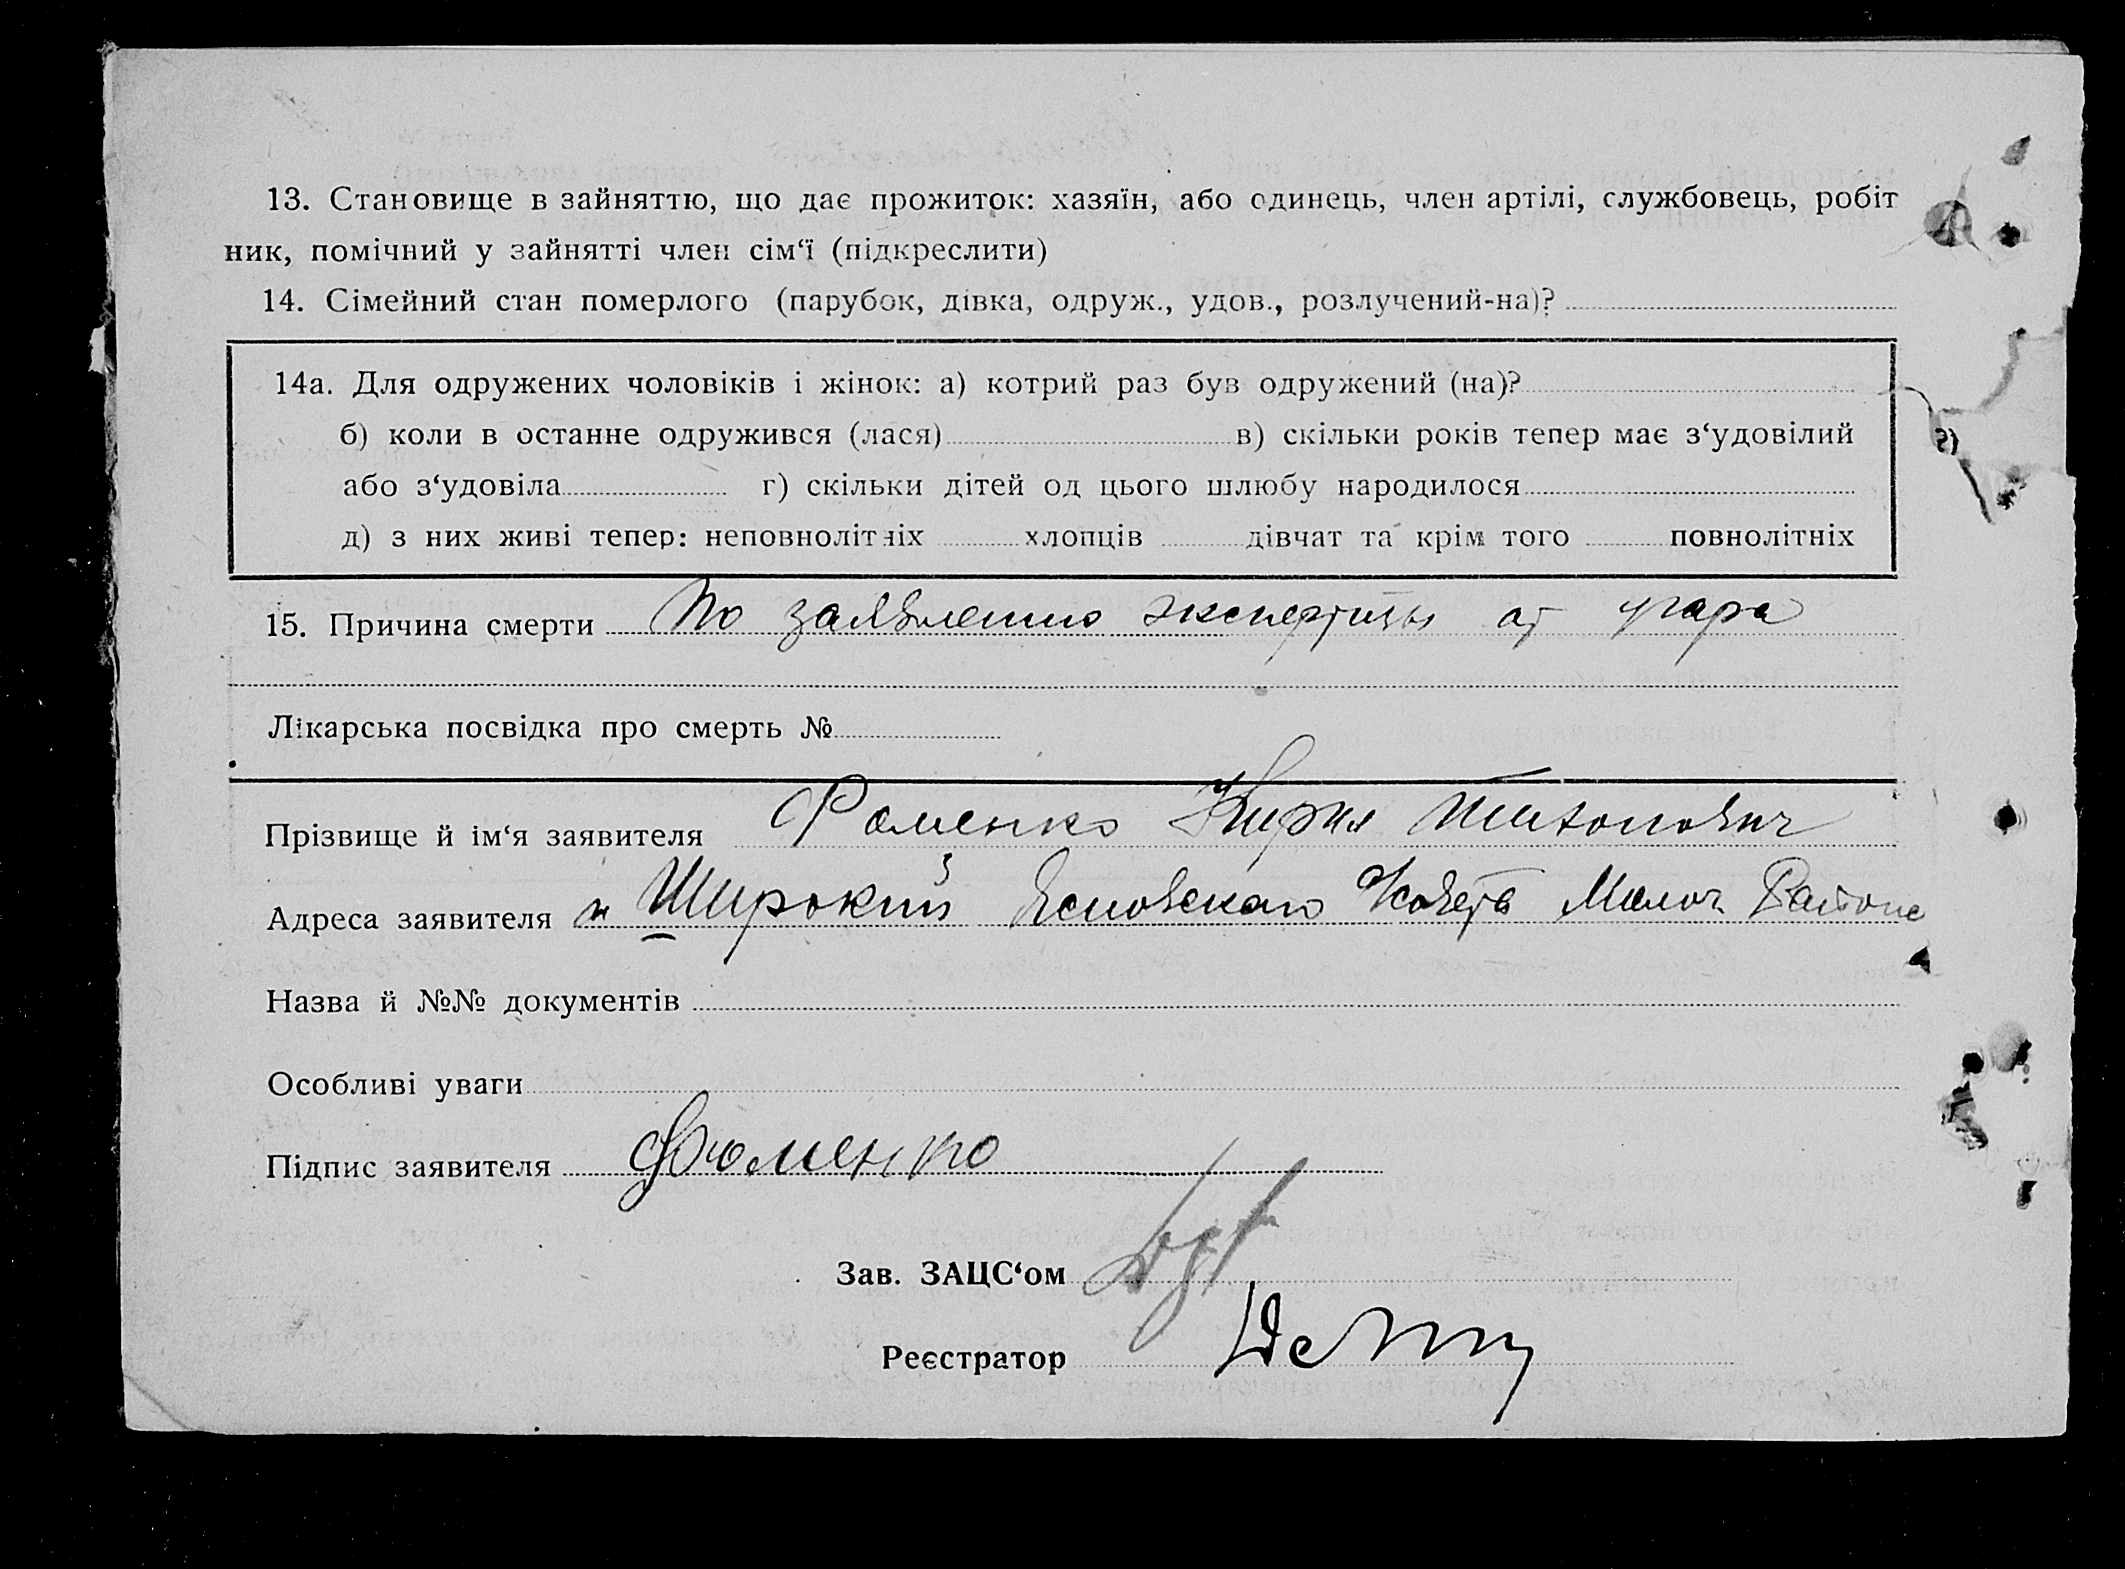 13. Становище в зайняттю, що дає прожиток: хазяїн, або одинець, член артілі, службовець, робіт
ник, помічний у зайнятті член сім‘ї (підкреслити)
14. Сімейний стан померлого (парубок, дівка, одруж., удов., розлучений-на)?
14а. Для одружених чоловіків і жінок: а) котрий раз був одружений (на)?
б) коли в останне одружився (лася) в) скільки років тепер має з‘удовілий
або з‘удовіла г) скільки дітей од цього шлюбу народилося
д) з них живі тепер: неповнолітніх хлопців дівчат та крім того повнолітніх
15. Причина смерти По заявлению экспертизы от угара
Лікарська посвідка про смерть №
Прізвище й ім‘я заявителя Фоменко Кирил Тихонович
Адреса заявителя х Широкий Района
Назва й №№ документів
Особливі уваги
Підпис заявителя Фоменко
Зав. ЗАЦС‘ом
Реєстратор